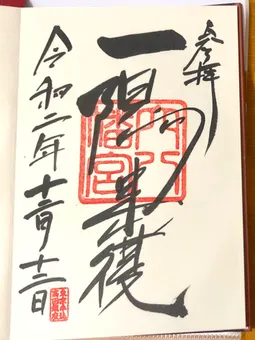 奉拝
一陽来復
穴八
幡宮
令和二年十二月十二日